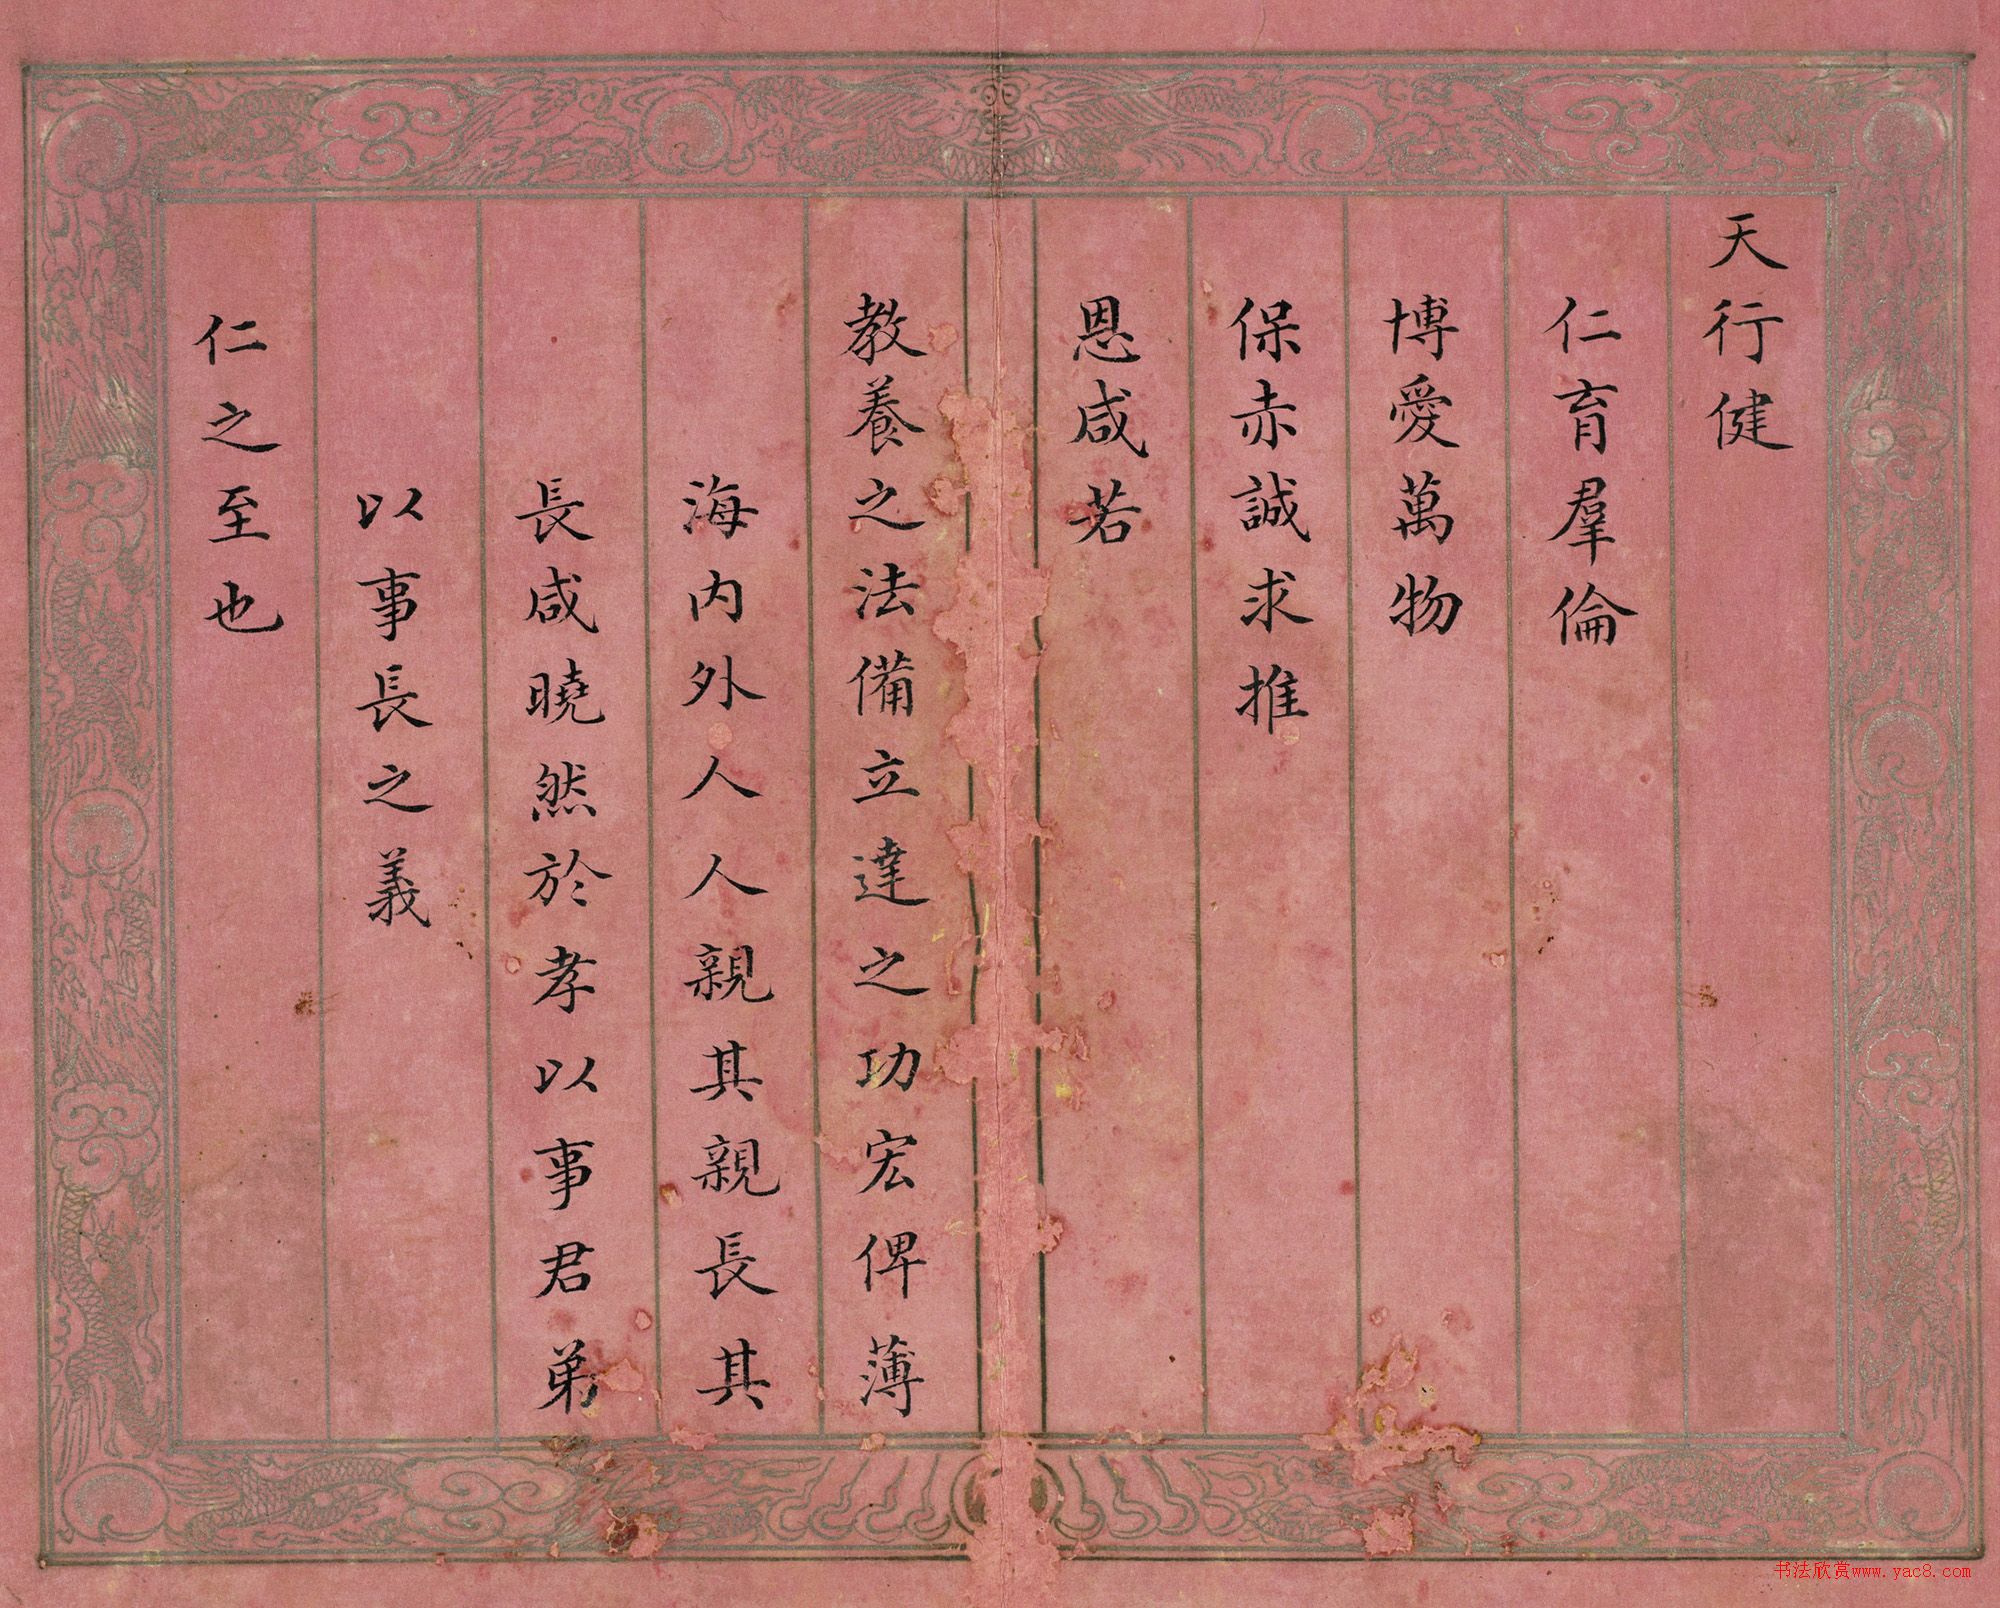 天行健
仁育羣倫
博愛萬物
保赤誠求推
恩咸若
教養之法備立達之功宏俾薄
海内外人人親其親長其
長咸曉然於孝以事君弟
以事長之義
仁之至也
书法欣赏www.yac8.com